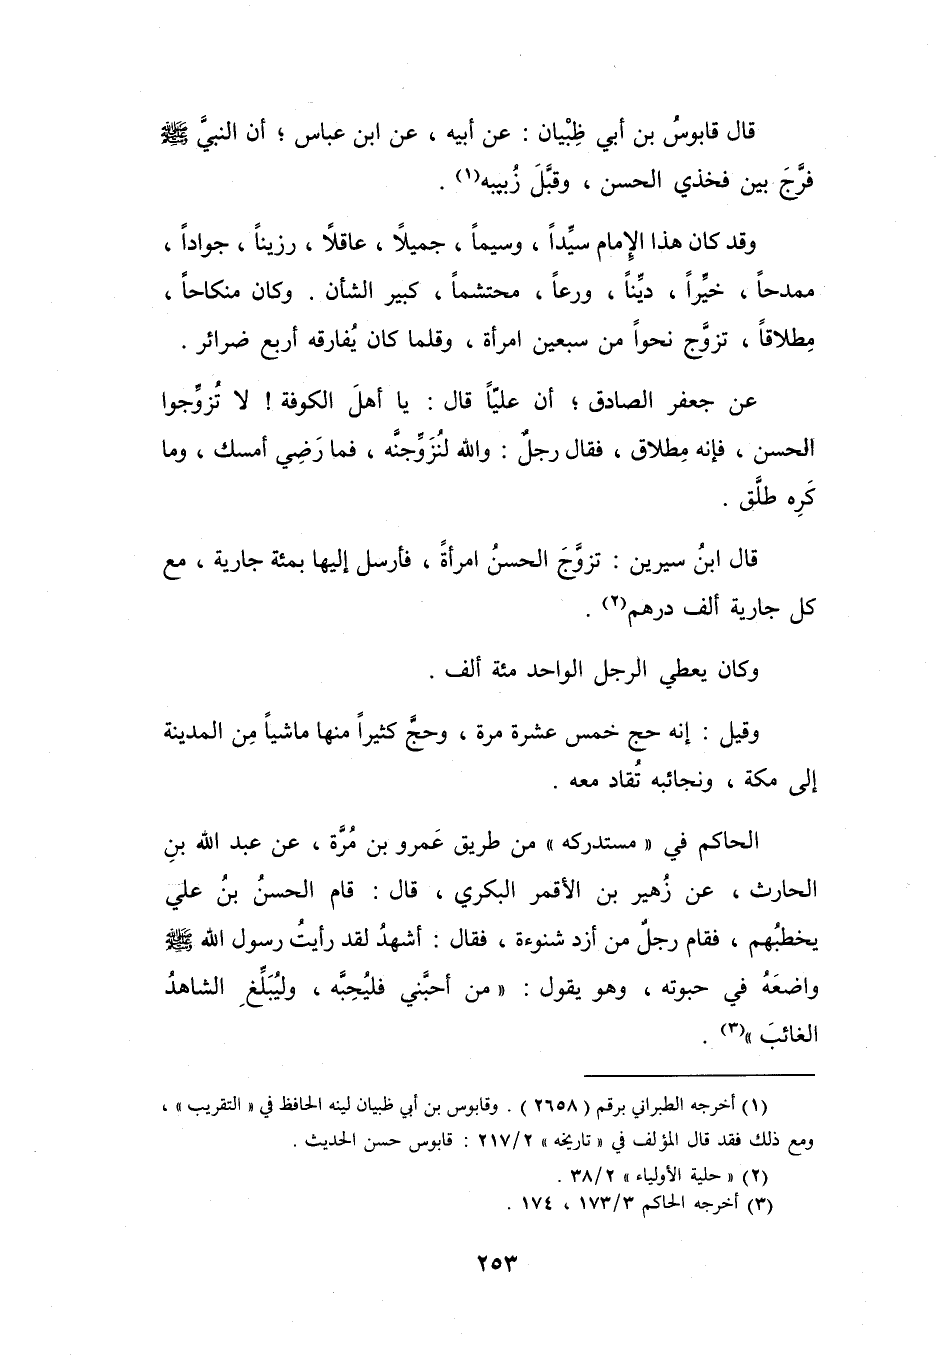 قال قابوسُ بن أبي ظِبْيان : عن أبيه ، عن ابن عباس ؛ أن النبيَّ ﷺ
فرَّجَ بين فخذي الحسن ، وقبَّلَ زُبيبه(١) .
وقد كان هذا الإمام سيِّداً ، وسيماً ، جميلاً ، عاقلاً ، رزيناً ، جواداً ،
ممدحاً ، خيِّراً ، ديِّناً ، ورعاً ، محتشماً ، كبير الشأن . وكان منكاحاً ،
مِطلاقاً ، تزوَّج نحواً من سبعين امرأة ، وقلما كان يُفارقه أربع ضرائر .
عن جعفر الصادق ؛ أن عليّاً قال : يا أهلَ الكوفة ! لا تُزوِّجوا
الحسن ، فإنه مِطلاق ، فقال رجلٌ : والله لنُزَوِّجنَّه ، فما رَضِي أمسك ، وما
كَرِه طلَّق .
قال ابنُ سيرين : تزوَّجَ الحسنُ امرأةً ، فأرسل إليها بمئة جارية ، مع
كل جارية ألف درهم(٢) .
وكان يعطي الرجل الواحد مئة ألف .
وقيل : إنه حج خمس عشرة مرة ، وحجَّ كثيراً منها ماشياً مِن المدينة
إلى مكة ، ونجائبه تُقاد معه .
الحاكم في « مستدركه » من طريق عَمرو بن مُرَّة ، عن عبد الله بنِ
الحارث ، عن زُهير بن الأقمر البكري ، قال : قام الحسنُ بنُ علي
يخطبُهم ، فقام رجلٌ من أزد شنوءة ، فقال : أشهدُ لقد رأيتُ رسول الله ﷺ
واضعَهُ في حبوته ، وهو يقول : « من أحبَّني فليُحِبَّه ، وليُبَلِّغِ الشاهدُ
الغائبَ »(٣) .
(١) أخرجه الطبراني برقم ( ٢٦٥٨ ) . وقابوس بن أبي ظبيان لينه الحافظ في « التقريب » ،
ومع ذلك فقد قال المؤلف في « تاريخه » ٢١٧/٢ : قابوس حسن الحديث .
(٢) « حلية الأولياء » ٣٨/٢ .
(٣) أخرجه الحاكم ١٧٣/٣ ، ١٧٤ .
٢٥٣